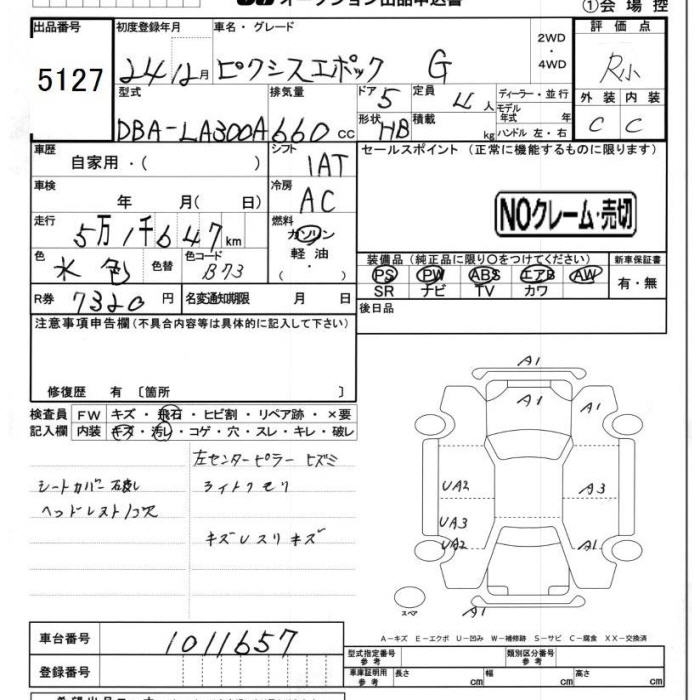 オークション出品申込書
①会場控
出品番号
5127
初度登録年月
24 12月
車名・グレード
ピクシスエポック G
2WD
・
4WD
評価点
R小
型式
DBA-LA300A
排気量
660 cc
ドア 5
定員 4人
形状 HB
積載 kg
ディーラー・並行
モデル年式 年
ハンドル 左・右
外装 内装
C C
車歴
自家用・( )
シフト
IAT
セールスポイント (正常に機能するものに限ります)
車検
年 月( 日)
冷房
AC
NOクレーム・売切
走行
5万1千647km
燃料
ガソリン
軽油
( ・ )
色
水色
色替
色コード
B73
装備品(純正品に限り○をつけてください)
PS PW ABS エアB AW
SR ナビ TV カワ
新車保証書
有・無
R券 7320円
名変通知期限 月 日
後日品
注意事項申告欄(不具合内容等は具体的に記入して下さい)
修復歴 有 〔箇所 〕
検査員
記入欄
FW キズ・飛石・ヒビ割・リペア跡・×要
内装 キズ・汚レ・コゲ・穴・スレ・キレ・破レ
左センターピラー ヒズミ
シートカバー
ライトクモリ
ヘッドレスト1欠
キズレスリキズ
A1
A1
A1
UA2
A3
UA3
UA2
A1
A1
スペア
A-キズ E-エクボ U-凹み W-補修跡 S-サビ C-腐食 XX-交換済
車台番号
1011657
登録番号
型式指定番号
参考
類別区分番号
参考
車庫証明用
参考
長さ cm
幅 cm
高さ cm